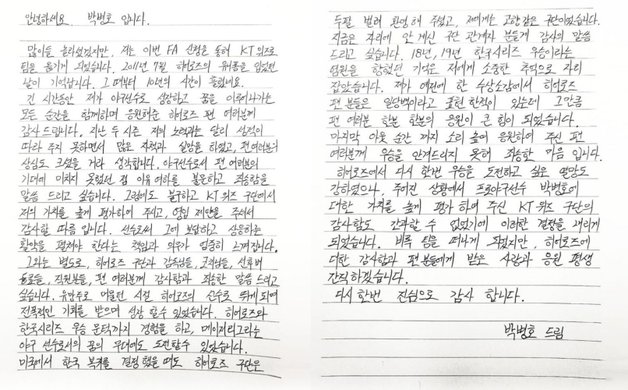 안녕하세요. 박병호 입니다.
많이들 놀라셨겠지만, 저는 이번 FA 신청을 통해 KT위즈로
팀을 옮기게 되었습니다. 2011년 7월 히어로즈의 유니폼을 입었던
날이 기억납니다. 그 때부터 10년의 시간이 흘렀네요.
긴 시간동안 제가 야구선수로 성장하고 꿈을 이루어나가는
모든 순간을 함께하며 응원해주신 히어로즈 팬 여러분께
감사드립니다. 지난 두 시즌 저의 노력과는 달리 성적이
따라 주지 못하면서 많은 추측과 실망을 하셨고, 팬여러분의
상심도 크셨을 거라 생각합니다. 야구선수로서 팬 여러분의
기대에 미치지 못했던 점 이유여하를 불문하고 죄송함을
말씀 드리고 싶습니다. 그럼에도 불구하고 KT위즈 구단에서
저의 가치를 높게 평가하여 주시고, 영입 제안을 주셔서
감사할 따름 입니다. 선수로서 그에 보답하고 상응하는
활약을 펼쳐야 한다는 책임과 의무가 엄중히 느껴집니다.
그와는 별도로, 히어로즈 구단과 감독님들, 코치님들, 선후배
동료들, 직원분들, 팬 여러분께 감사함과 죄송한 말씀 드리고
싶습니다. 유망주로 머물던 시절 히어로즈의 선수로 뛰게 되며
전폭적인 기회를 받으며 성장 할 수 있었습니다. 히어로즈와
한국시리즈 우승 문턱까지 경험을 하고, 메이저리그라는
야구 선수로서의 꿈의 무대에도 도전할수 있었습니다.
미국에서 한국 복귀를 결정 했을 때도 히어로즈 구단은
두팔 벌려 환영해 주셨고, 저에게는 고향 같은 구단이었습니다.
지금은 자리에 안 계신 구단 관계자 분들께 감사의 말씀
드리고 싶습니다. 18년, 19년 한국시리즈 우승이라는
염원을 향했던 기억은 저에게 소중한 추억으로 자리
잡았습니다. 제가 예전에 한 수상소감에서 히어로즈
팬 분들은 일당백이라고 표현 한적이 있는데 그만큼
팬 여러분 한분 한분의 응원이 큰 힘이 되었습니다.
마지막 아웃 순간 까지 소리 높여 응원하여 주신 팬
여러분께 우승을 안겨드리지 못해 죄송한 마음 입니다.
히어로즈에서 다시 한번 우승을 도전하고 싶은 열망도
강하였으나. 주어진 상황에서 프로야구선수 박병호에
대한 가치를 높게 평가 하여 주신 KT위즈 구단의
감사함도 간과할 수 없었기에 이러한 결정을 내리게
되었습니다. 비록 팀을 떠나게 되었지만, 히어로즈에
대한 감사함과 팬 분들에게 받은 사랑과 응원 평생
간직하겠습니다.
다시 한번 진심으로 감사 합니다.
박병호 드림